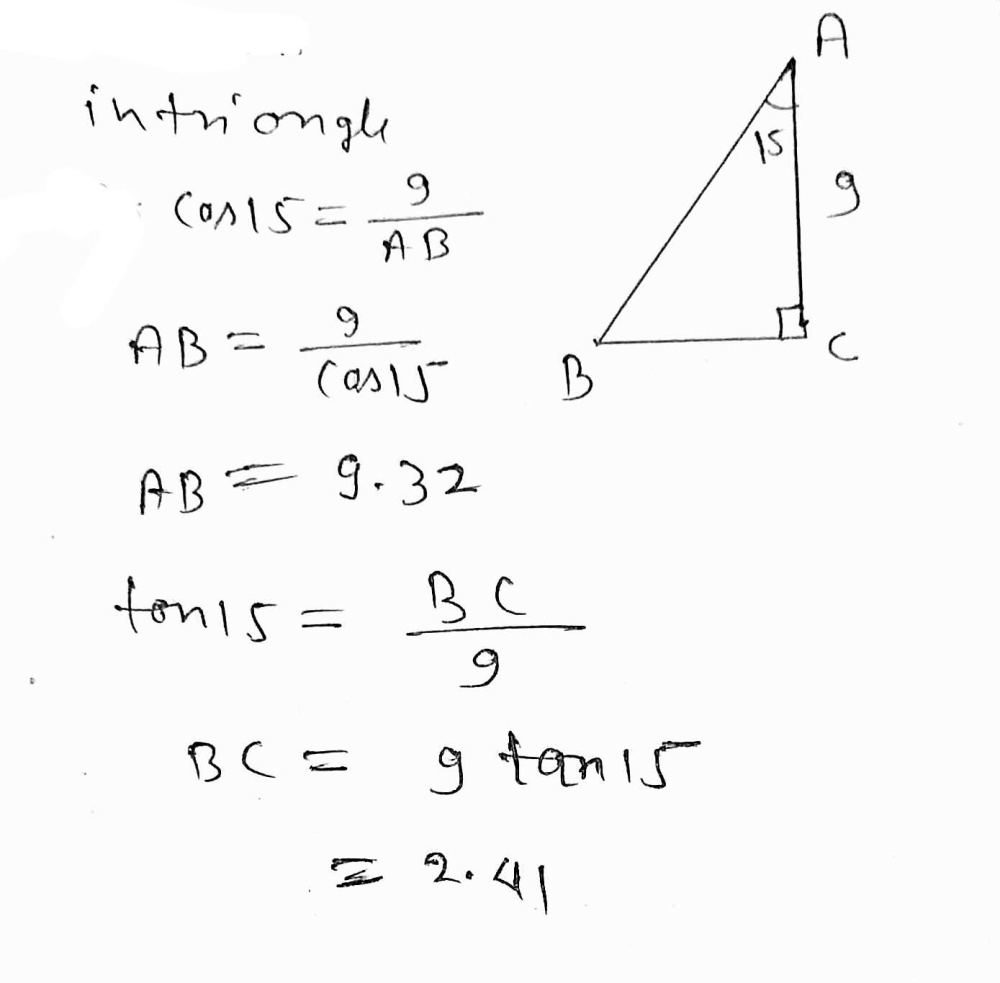 in triongle
cos15 = 9/AB
AB = 9/cos15
AB = 9.32
ton15 = BC/9
BC = 9 tan15
= 2.41
A
15
9
B
C